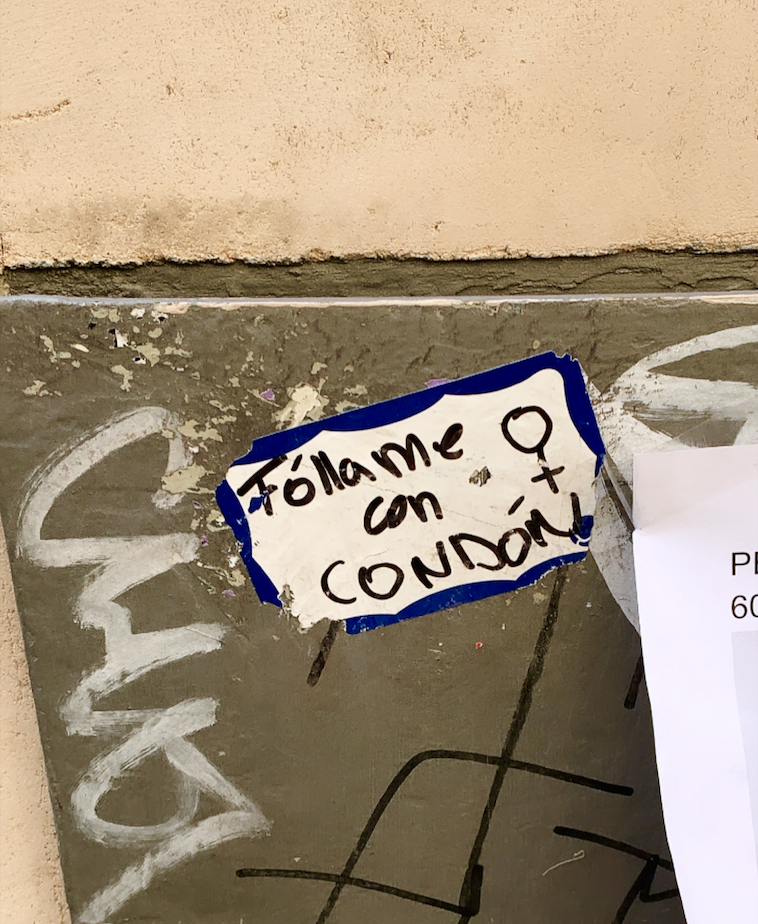 Fóllame ♀
con
CONDÓN!
PE
60